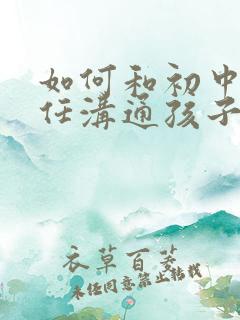 如何和初中
任溝通孩子
衣草百芰
未经同意禁止转载